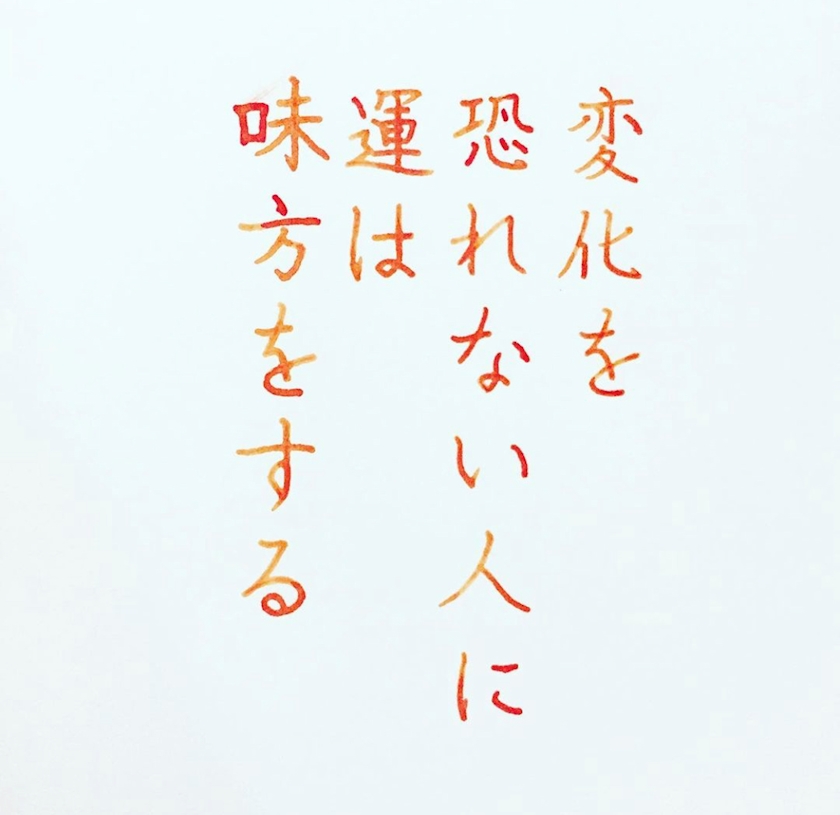 変化を
恐れない人に
運は
味方をする